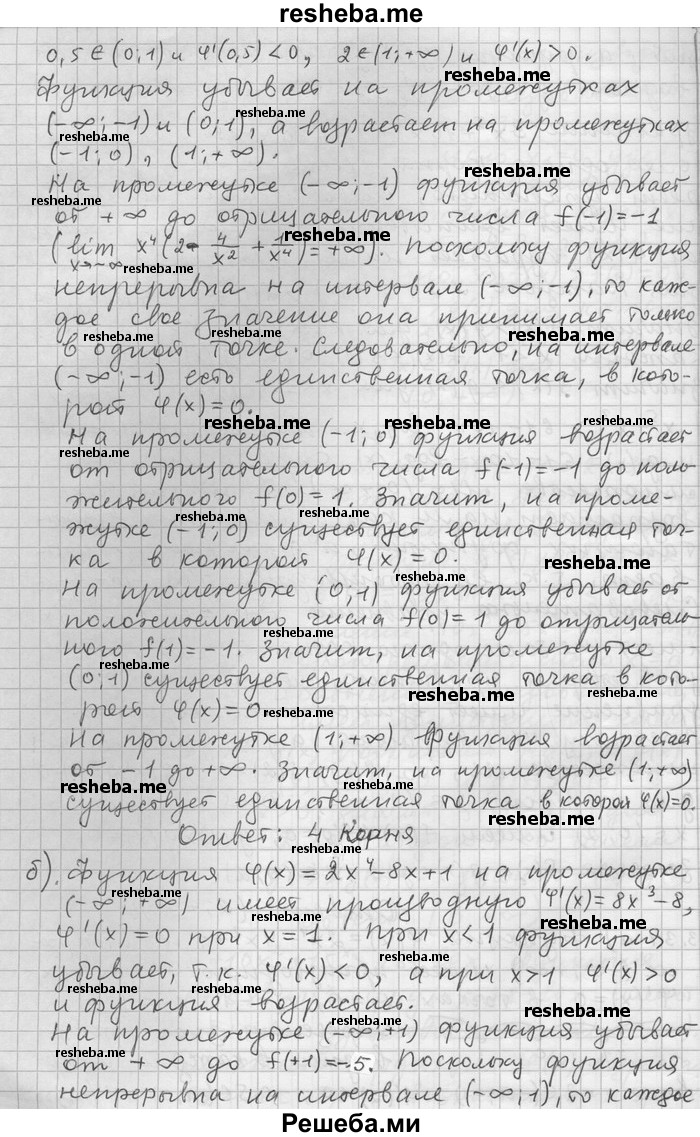 resheba.me
0,5 ∈ (0;1) и φ'(0,5) < 0, 2 ∈ (1;+∞) и φ'(x) > 0.
Функция убывает на промежутках
(-∞;-1) и (0;1), а возрастает на промежутках
(-1;0), (1;+∞).
На промежутке (-∞;-1) функция убывает
от +∞ до отрицательного числа f(-1)=-1
(lim x→-∞ x⁴(2 - 4/x² + 1/x⁴) = +∞). Поскольку функция
непрерывна на интервале (-∞;-1), то каж-
дое свое значение она принимает только
в одной точке. Следовательно, на интервале
(-∞;-1) есть единственная точка, в кото-
рой φ(x)=0.
На промежутке (-1;0) функция возрастает
от отрицательного числа f(-1)=-1 до поло-
жительного f(0)=1. Значит, на проме-
жутке (-1;0) существует единственная точ-
ка в которой φ(x)=0.
На промежутке (0;1) функция убывает от
положительного числа f(0)=1 до отрицатель-
ного f(1)=-1. Значит, на промежутке
(0;1) существует единственная точка в кото-
рой φ(x)=0
На промежутке (1;+∞) функция возрастает
от -1 до +∞. Значит, на промежутке (1;+∞)
существует единственная точка в которой φ(x)=0.
Ответ: 4 корня
б). Функция φ(x)=2x⁴-8x+1 на промежутке
(-∞;+∞) имеет производную φ'(x)=8x³-8,
φ'(x)=0 при x=1. При x<1 функция
убывает, т.к. φ'(x)<0, а при x>1 φ'(x)>0
и функция возрастает.
На промежутке (-∞;+1) функция убывает
от +∞ до f(+1)=-5. Поскольку функция
непрерывна на интервале (-∞;1), то каждое
Решеба.ми